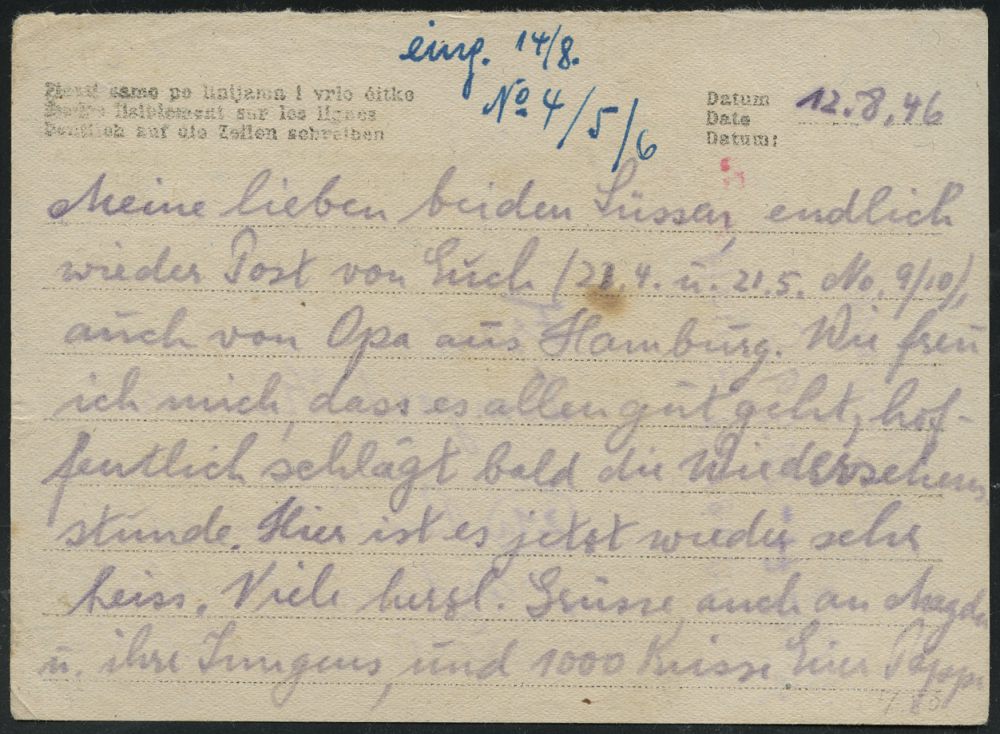 eing. 14/8.
No 4/5/6
Pisati samo po linijama i vrlo čitko
lisiblement sur les lignes
Deutlich auf die Zeilen schreiben
Datum 12.8.46
Date
Datum:
Meine lieben beiden Süssen, endlich
wieder Post von Euch (21.4. u. 21.5. No. 9/10),
auch von Opa aus Hamburg. Wie freu
ich mich, dass es allen gut geht, hof-
fentlich schlägt bald die Wiedersehens
stunde. Hier ist es jetzt wieder sehr
heiss. Viele herzl. Grüsse, auch an Magda
u. ihre Jungens, und 1000 Küsse Euer Pappi